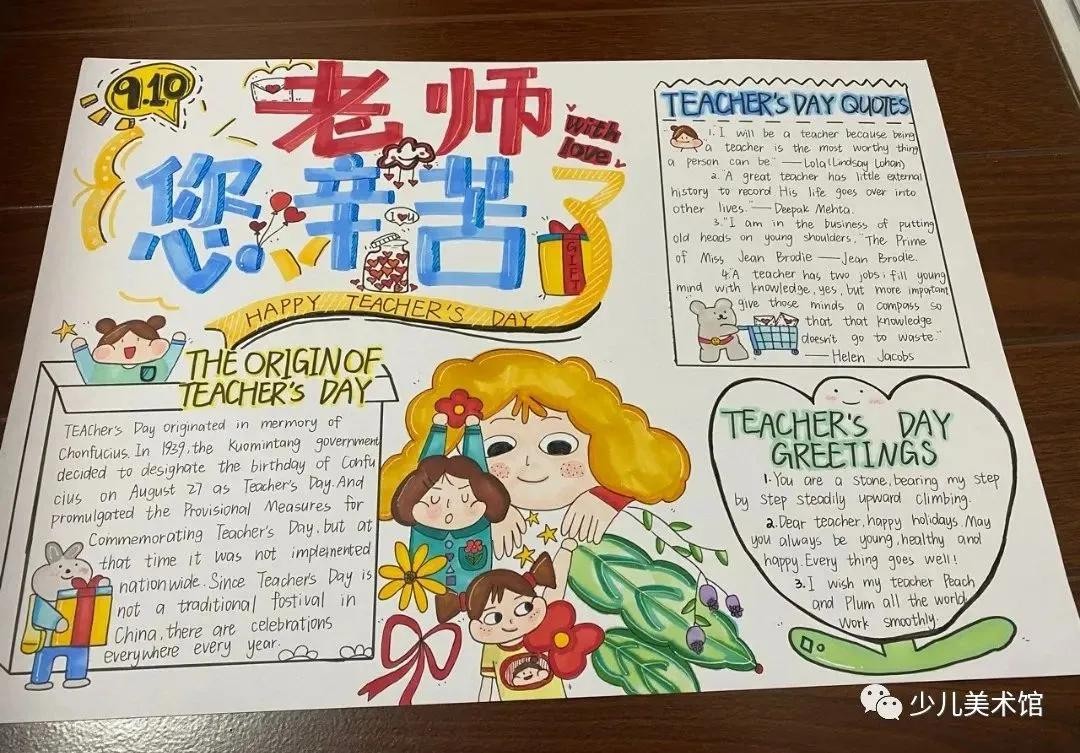 9.10
老师
with
love
您辛苦了
I❤U
GIFT
HAPPY TEACHER'S DAY
THE ORIGIN OF
TEACHER'S DAY
TEACher's Day originated in mermory of
Chonfucius. In 1939, the Kuomintang government
decided to designate the birthday of Confu
cius on August 27 as Teacher's Day. And
promulgated the Provisional Measures for
Commemorating Teacher's Day, but at
that time it was not implemented
nationwide. Since Teacher's Day is
not a traditional fostival in
China, there are celebrations
everywhere every year.
TEACHER'S DAY QUOTES
1. I will be a teacher because being
a teacher is the most worthy thing
a person can be." —— Lola (Lindsay Lohan)
2. "A great teacher has little external
history to record His life goes over into
other lives." —— Deepak Mehta.
3. "I am in the business of putting
old heads on young shoulders." The Prime
of Miss Jean Brodie —— Jean Brodie.
4. A teacher has two jobs; fill young
mind with knowledge, yes, but more important
give those minds a compass so
that that knowledge
doesn't go to waste."
—— Helen Jacobs
TEACHER'S DAY
GREETINGS
1. You are a stone, bearing my step
by step steadily upward climbing.
2. Dear teacher, happy holidays. May
you always be young, healthy and
happy. Every thing goes well!
3. I wish my teacher Peach
and Plum all the world
work smoothly.
少儿美术馆